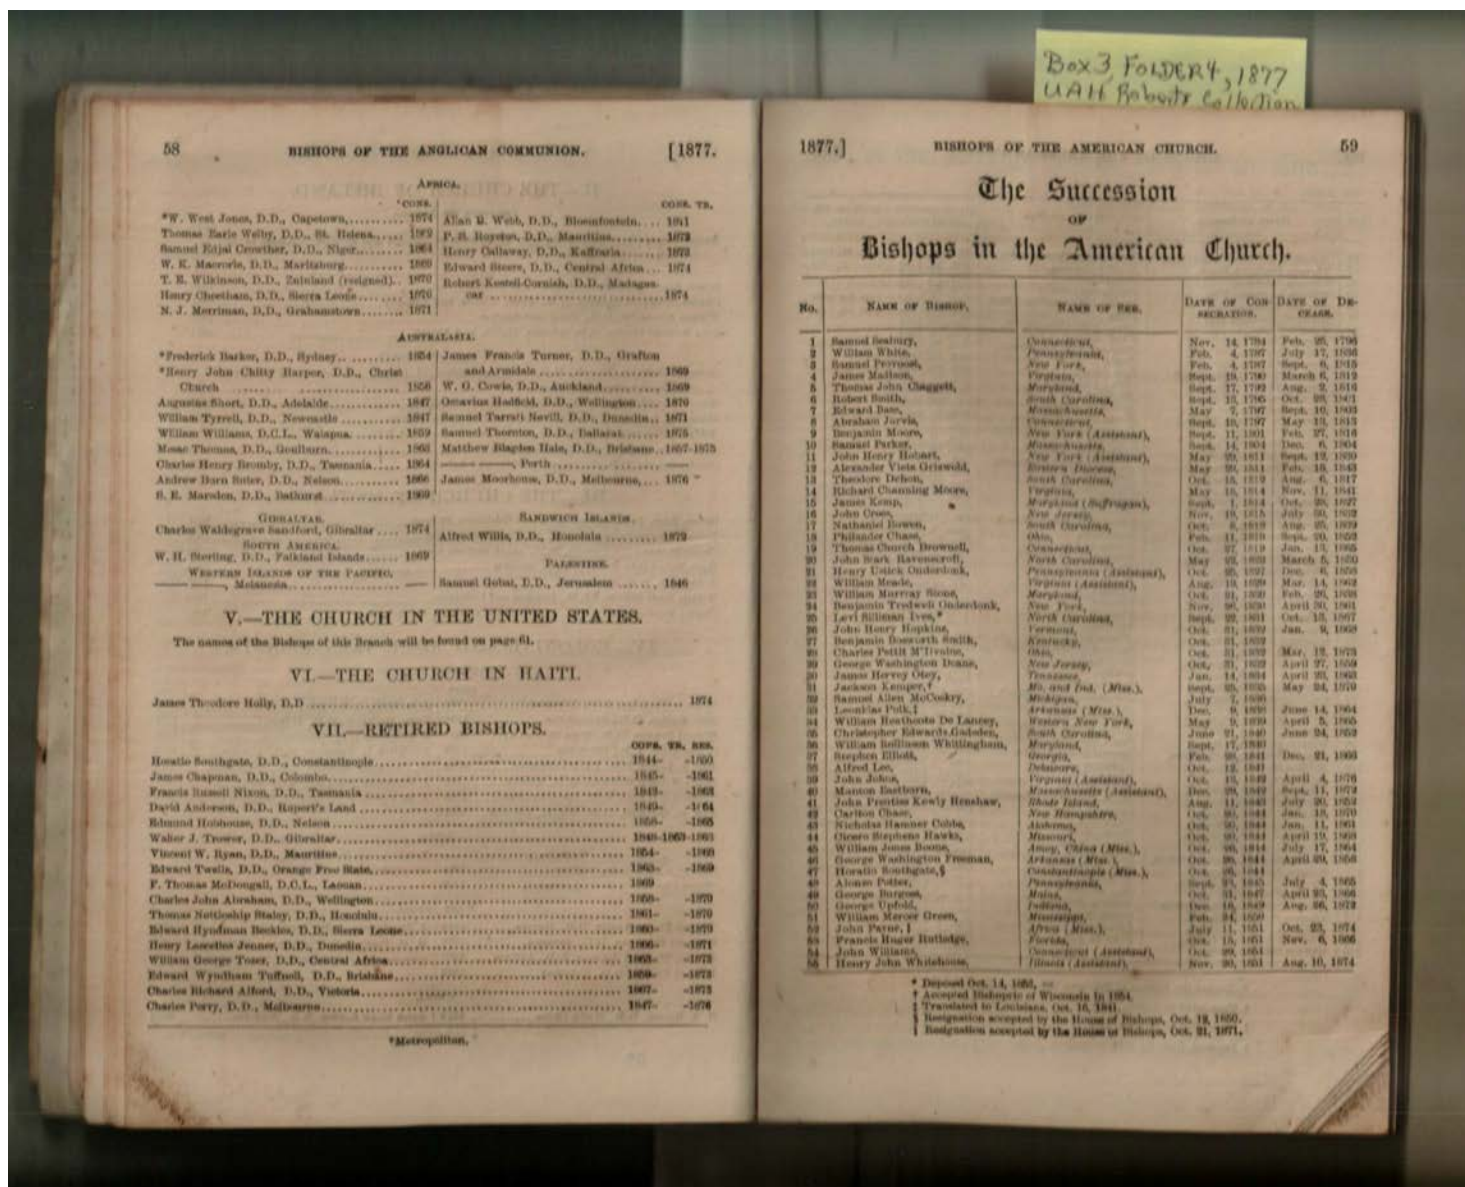 Box 3, FOLDER 4, 1877
UAH Roberts Collection
58 BISHOPS OF THE ANGLICAN COMMUNION. [1877.
AFRICA.
CONS.
*W. West Jones, D.D., Capetown, 1874
Thomas Earle Welby, D.D., St. Helena
Samuel Crowther, D.D., Niger 1864
W. K. Macrorie, D.D., Maritzburg 1869
T. E. Wilkinson, D.D., Zululand (resigned) 1870
Henry Cheetham, D.D., Sierra Leone 1870
N. J. Merriman, D.D., Grahamstown 1871
CONS. TR.
Allan B. Webb, D.D., Bloemfontein
P. S. Royston, D.D., Mauritius
Henry Callaway, D.D., Kaffraria 1873
Edward Steere, D.D., Central Africa 1874
Robert Kestell-Cornish, D.D., Madagas-
car 1874
AUSTRALASIA.
*Frederick Barker, D.D., Sydney 1854
*Henry John Chitty Harper, D.D., Christ
Church 1856
Augustus Short, D.D., Adelaide 1847
William Tyrrell, D.D., Newcastle 1847
William Williams, D.C.L., Waiapua 1859
Mesac Thomas, D.D., Goulburn 1863
Charles Henry Bromby, D.D., Tasmania 1864
Andrew Burn Suter, D.D., Nelson 1866
S. E. Marsden, D.D., Bathurst 1869
James Francis Turner, D.D., Grafton
and Armidale 1869
W. G. Cowie, D.D., Auckland 1869
Octavius Hadfield, D.D., Wellington 1870
Samuel Tarratt Nevill, D.D., Dunedin 1871
Samuel Thornton, D.D., Ballarat 1875
Matthew Blagden Hale, D.D., Brisbane 1857-1875
———, Perth ———
James Moorhouse, D.D., Melbourne, 1876
GIBRALTAR.
Charles Waldegrave Sandford, Gibraltar 1874
SOUTH AMERICA.
W. H. Sterling, D.D., Falkland Islands 1869
WESTERN ISLANDS OF THE PACIFIC.
———, Melanesia ———
SANDWICH ISLANDS.
Alfred Willis, D.D., Honolulu 1872
PALESTINE.
Samuel Gobat, D.D., Jerusalem 1846
V.—THE CHURCH IN THE UNITED STATES.
The names of the Bishops of this Branch will be found on page 61.
VI.—THE CHURCH IN HAITI.
James Theodore Holly, D.D 1874
VII.—RETIRED BISHOPS.
CONS. TR. RES.
Horatio Southgate, D.D., Constantinople 1844- -1850
James Chapman, D.D., Colombo 1845- -1861
Francis Russell Nixon, D.D., Tasmania -1863
David Anderson, D.D., Rupert's Land 1849- -1864
Edmund Hobhouse, D.D., Nelson 1858- -1865
Walter J. Trower, D.D., Gibraltar 1848-1863-1868
Vincent W. Ryan, D.D., Mauritius 1854- -1868
Edward Twells, D.D., Orange Free State 1863- -1869
F. Thomas McDougall, D.C.L., Labuan
Charles John Abraham, D.D., Wellington 1858- -1870
Thomas Nettleship Staley, D.D., Honolulu 1861- -1870
Edward Hyndman Beckles, D.D., Sierra Leone 1860- -1870
Henry Lascelles Jenner, D.D., Dunedin 1866- -1871
William George Tozer, D.D., Central Africa 1863- -1873
Edward Wyndham Tuffnell, D.D., Brisbane 1859- -1875
Charles Richard Alford, D.D., Victoria 1867-
Charles Perry, D.D., Melbourne 1847- -1876
*Metropolitan.
1877.] BISHOPS OF THE AMERICAN CHURCH. 59
The Succession
OF
Bishops in the American Church.
No. NAME OF BISHOP. NAME OF SEE. DATE OF CON- DATE OF DE-
SECRATION. CEASE.
1 Samuel Seabury, Connecticut, Nov. 14, 1784 Feb. 25, 1796
2 William White, Pennsylvania, Feb. 4, 1787 July 17, 1836
3 Samuel Provoost, New York, Feb. 4, 1787 Sept. 6, 1815
4 James Madison, Virginia, Sept. 19, 1790 March 6, 1812
5 Thomas John Claggett, Maryland, Sept. 17, 1792 Aug. 2, 1816
6 Robert Smith, South Carolina, Sept. 13, 1795 Oct. 28, 1801
7 Edward Bass, Massachusetts, May 7, 1797 Sept. 10, 1803
8 Abraham Jarvis, Connecticut, 1797 May 13, 1813
9 Benjamin Moore, New York (Assistant), Sept. 11, 1801 Feb. 27, 1816
10 Samuel Parker, Massachusetts, Sept. 14, 1804 Dec. 6, 1804
11 John Henry Hobart, New York (Assistant), May 29, 1811 Sept. 12, 1830
12 Alexander Viets Griswold, Eastern Diocese, May 29, 1811 Feb. 15, 1843
13 Theodore Dehon, South Carolina, Oct. 15, Aug. 6, 1817
14 Richard Channing Moore, Virginia, May 18, 1814 Nov. 11, 1841
15 James Kemp, Maryland (Suffragan), Sept. 1, 1814 Oct. 28, 1827
16 John Croes, New Jersey, Nov. 19, 1815 July 30, 1832
17 Nathaniel Bowen, South Carolina, Oct. 8, 1818 Aug. 25, 1839
18 Philander Chase, Ohio, Feb. 11, 1819 Sept. 20, 1852
19 Thomas Church Brownell, Connecticut, Oct. 27, 1819 Jan. 13, 1865
20 John Stark Ravenscroft, North Carolina, May 22, 1823 March 5, 1830
21 Henry Ustick Onderdonk, Pennsylvania (Assistant), Oct. 25, 1827 Dec. 6, 1858
22 William Meade, Virginia (Assistant), Aug. 19, 1829 Mar. 14, 1862
23 William Murray Stone, Maryland, Oct. 21, 1830 Feb. 26, 1838
24 Benjamin Tredwell Onderdonk, New York, Nov. 26, 1830 April 30, 1861
25 Levi Silliman Ives,* North Carolina, Sept. 22, 1831 Oct. 13, 1867
26 John Henry Hopkins, Vermont, Oct. 31, 1832 Jan. 9, 1868
27 Benjamin Bosworth Smith, Kentucky, Oct. 31, 1832
28 Charles Pettit M'Ilvaine, Ohio, Oct. 31, 1832 Mar. 12, 1873
29 George Washington Doane, New Jersey, Oct. 31, 1832 April 27, 1859
30 James Hervey Otey, Tennessee, Jan. 14, 1834 April 23, 1863
31 Jackson Kemper,† Mo. and Ind. (Miss.), Sept. 25, 1835 May 24, 1870
32 Samuel Allen McCoskry, Michigan, July 7, 1836
33 Leonidas Polk,‡ Arkansas (Miss.), Dec. 9, 1838 June 14, 1864
34 William Heathcote De Lancey, Western New York, May 9, 1839 April 5, 1865
35 Christopher Edwards Gadsden, South Carolina, June 21, 1840 June 24, 1852
36 William Rollinson Whittingham, Maryland, Sept. 17, 1840
37 Stephen Elliott, Georgia, Feb. 28, 1841 Dec. 21, 1866
38 Alfred Lee, Delaware, Oct. 12, 1841
39 John Johns, Virginia (Assistant), Oct. 13, 1842 April 4, 1876
40 Manton Eastburn, Massachusetts (Assistant), Dec. 29, 1842 Sept. 11, 1872
41 John Prentiss Kewly Henshaw, Rhode Island, Aug. 11, 1843 July 20, 1852
42 Carlton Chase, New Hampshire, Oct. 20, 1844 Jan. 18, 1870
43 Nicholas Hamner Cobbs, Alabama, Oct. 20, 1844 Jan. 11, 1861
44 Cicero Stephens Hawks, Missouri, Oct. 20, 1844 April 19, 1868
45 William Jones Boone, Amoy, China (Miss.), Oct. 26, 1844 July 17, 1864
46 George Washington Freeman, Arkansas (Miss.), Oct. 26, 1844 April 29, 1858
47 Horatio Southgate,§ Constantinople (Miss.), Oct. 26, 1844
48 Alonzo Potter, Pennsylvania, Sept. 23, 1845 July 4, 1865
49 George Burgess, Maine, Oct. 31, 1847 April 23, 1866
50 George Upfold, Indiana, Dec. 16, 1849 Aug. 26, 1872
51 William Mercer Green, Mississippi, Feb. 24, 1850
52 John Payne,‖ Africa (Miss.), July 11, 1851 Oct. 23, 1874
53 Francis Huger Rutledge, Florida, Oct. 15, 1851 Nov. 6, 1866
54 John Williams, Connecticut (Assistant), Oct. 29, 1851
55 Henry John Whitehouse, Illinois (Assistant), Nov. 20, 1851 Aug. 10, 1874
* Deposed Oct. 14, 1853.
† Accepted Bishopric of Wisconsin in 1854.
‡ Translated to Louisiana, Oct. 16, 1841.
§ Resignation accepted by the House of Bishops, Oct. 12, 1850.
‖ Resignation accepted by the House of Bishops, Oct. 21, 1871.